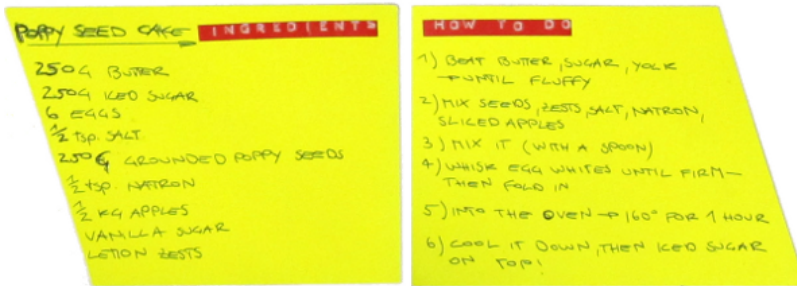 POPPY SEED CAKE INGREDIENTS
250G BUTTER
250G ICED SUGAR
6 EGGS
1/2 tsp. SALT
250G GROUNDED POPPY SEEDS
1/2 tsp. NATRON
1/2 KG APPLES
VANILLA SUGAR
LEMON ZESTS
HOW TO DO
1) BEAT BUTTER, SUGAR, YOLK
→ UNTIL FLUFFY
2) MIX SEEDS, ZESTS, SALT, NATRON,
SLICED APPLES
3) MIX IT (WITH A SPOON)
4) WHISK EGG WHITES UNTIL FIRM—
THEN FOLD IN
5) INTO THE OVEN → 160° FOR 1 HOUR
6) COOL IT DOWN, THEN ICED SUGAR
ON TOP!